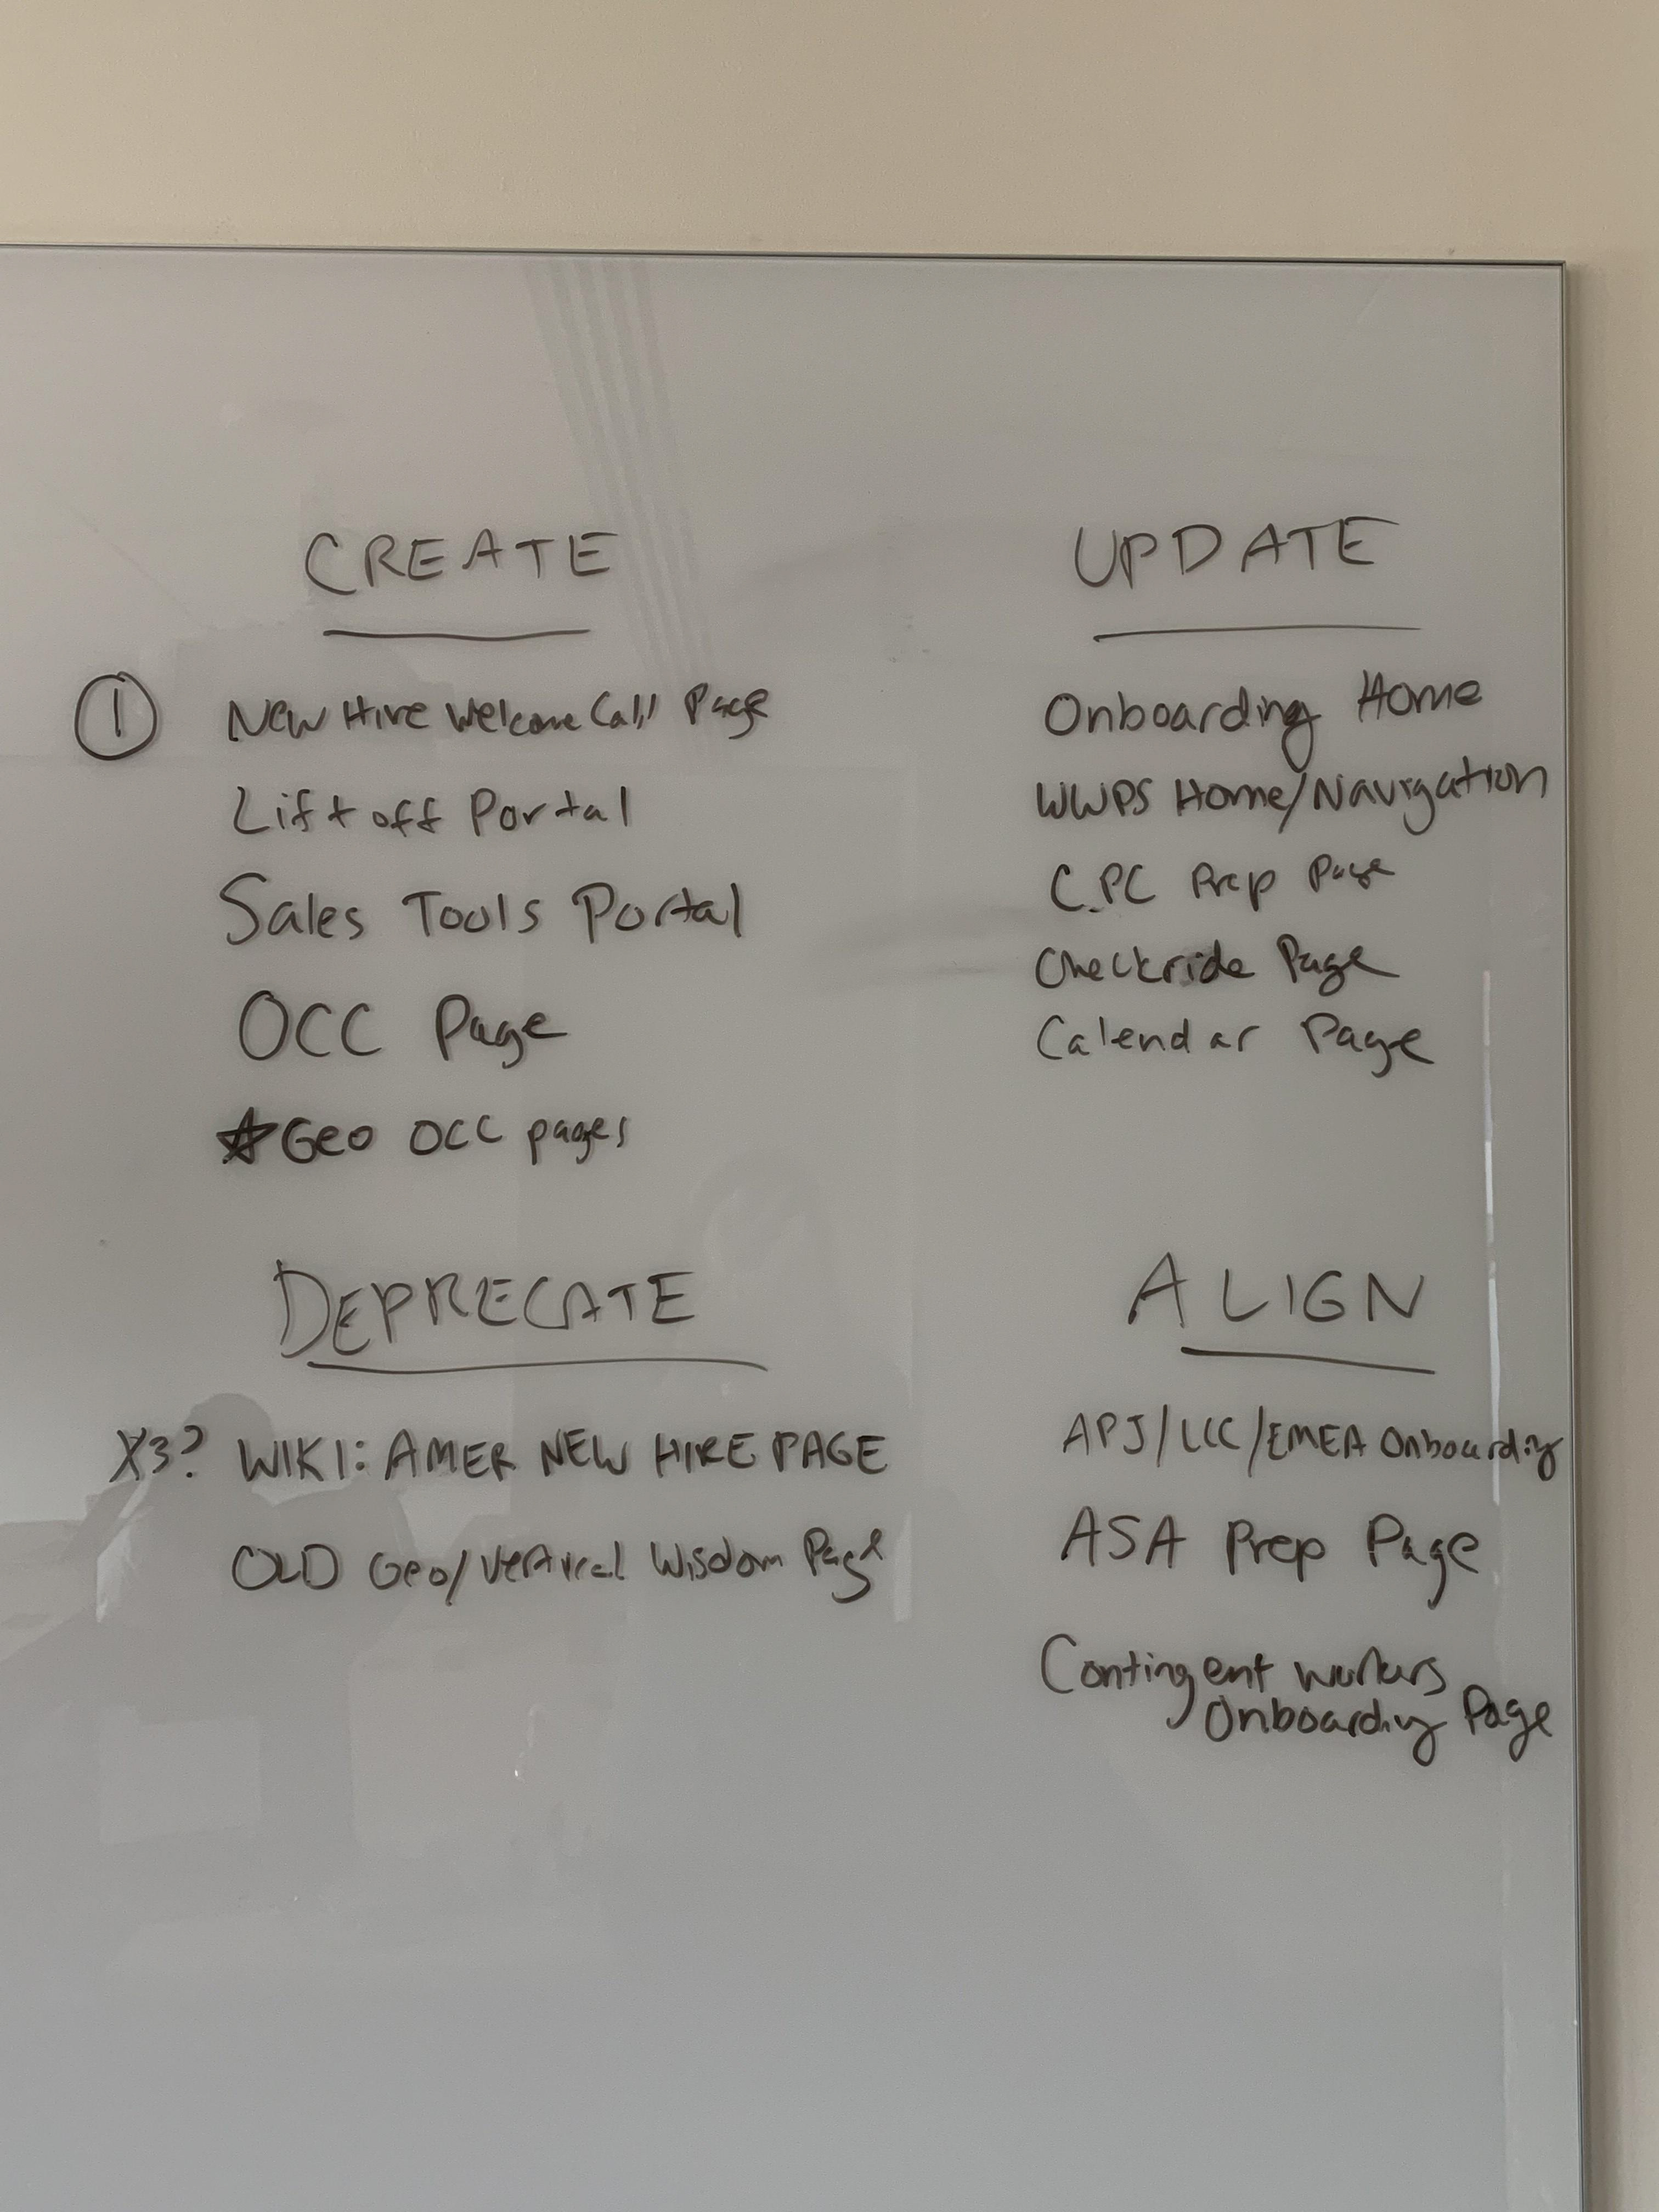 CREATE
① New Hire Welcome Call Page
Liftoff Portal
Sales Tools Portal
OCC Page
☆ Geo OCC pages
UPDATE
Onboarding Home
WWPS Home/Navigation
CPC Prep Page
Checkride Page
Calendar Page
DEPRECATE
X3? WIKI: AMER NEW HIRE PAGE
OLD Geo/Vertical Wisdom Page
ALIGN
APJ/ /EMEA Onboarding
ASA Prep Page
Contingent workers
Onboarding Page